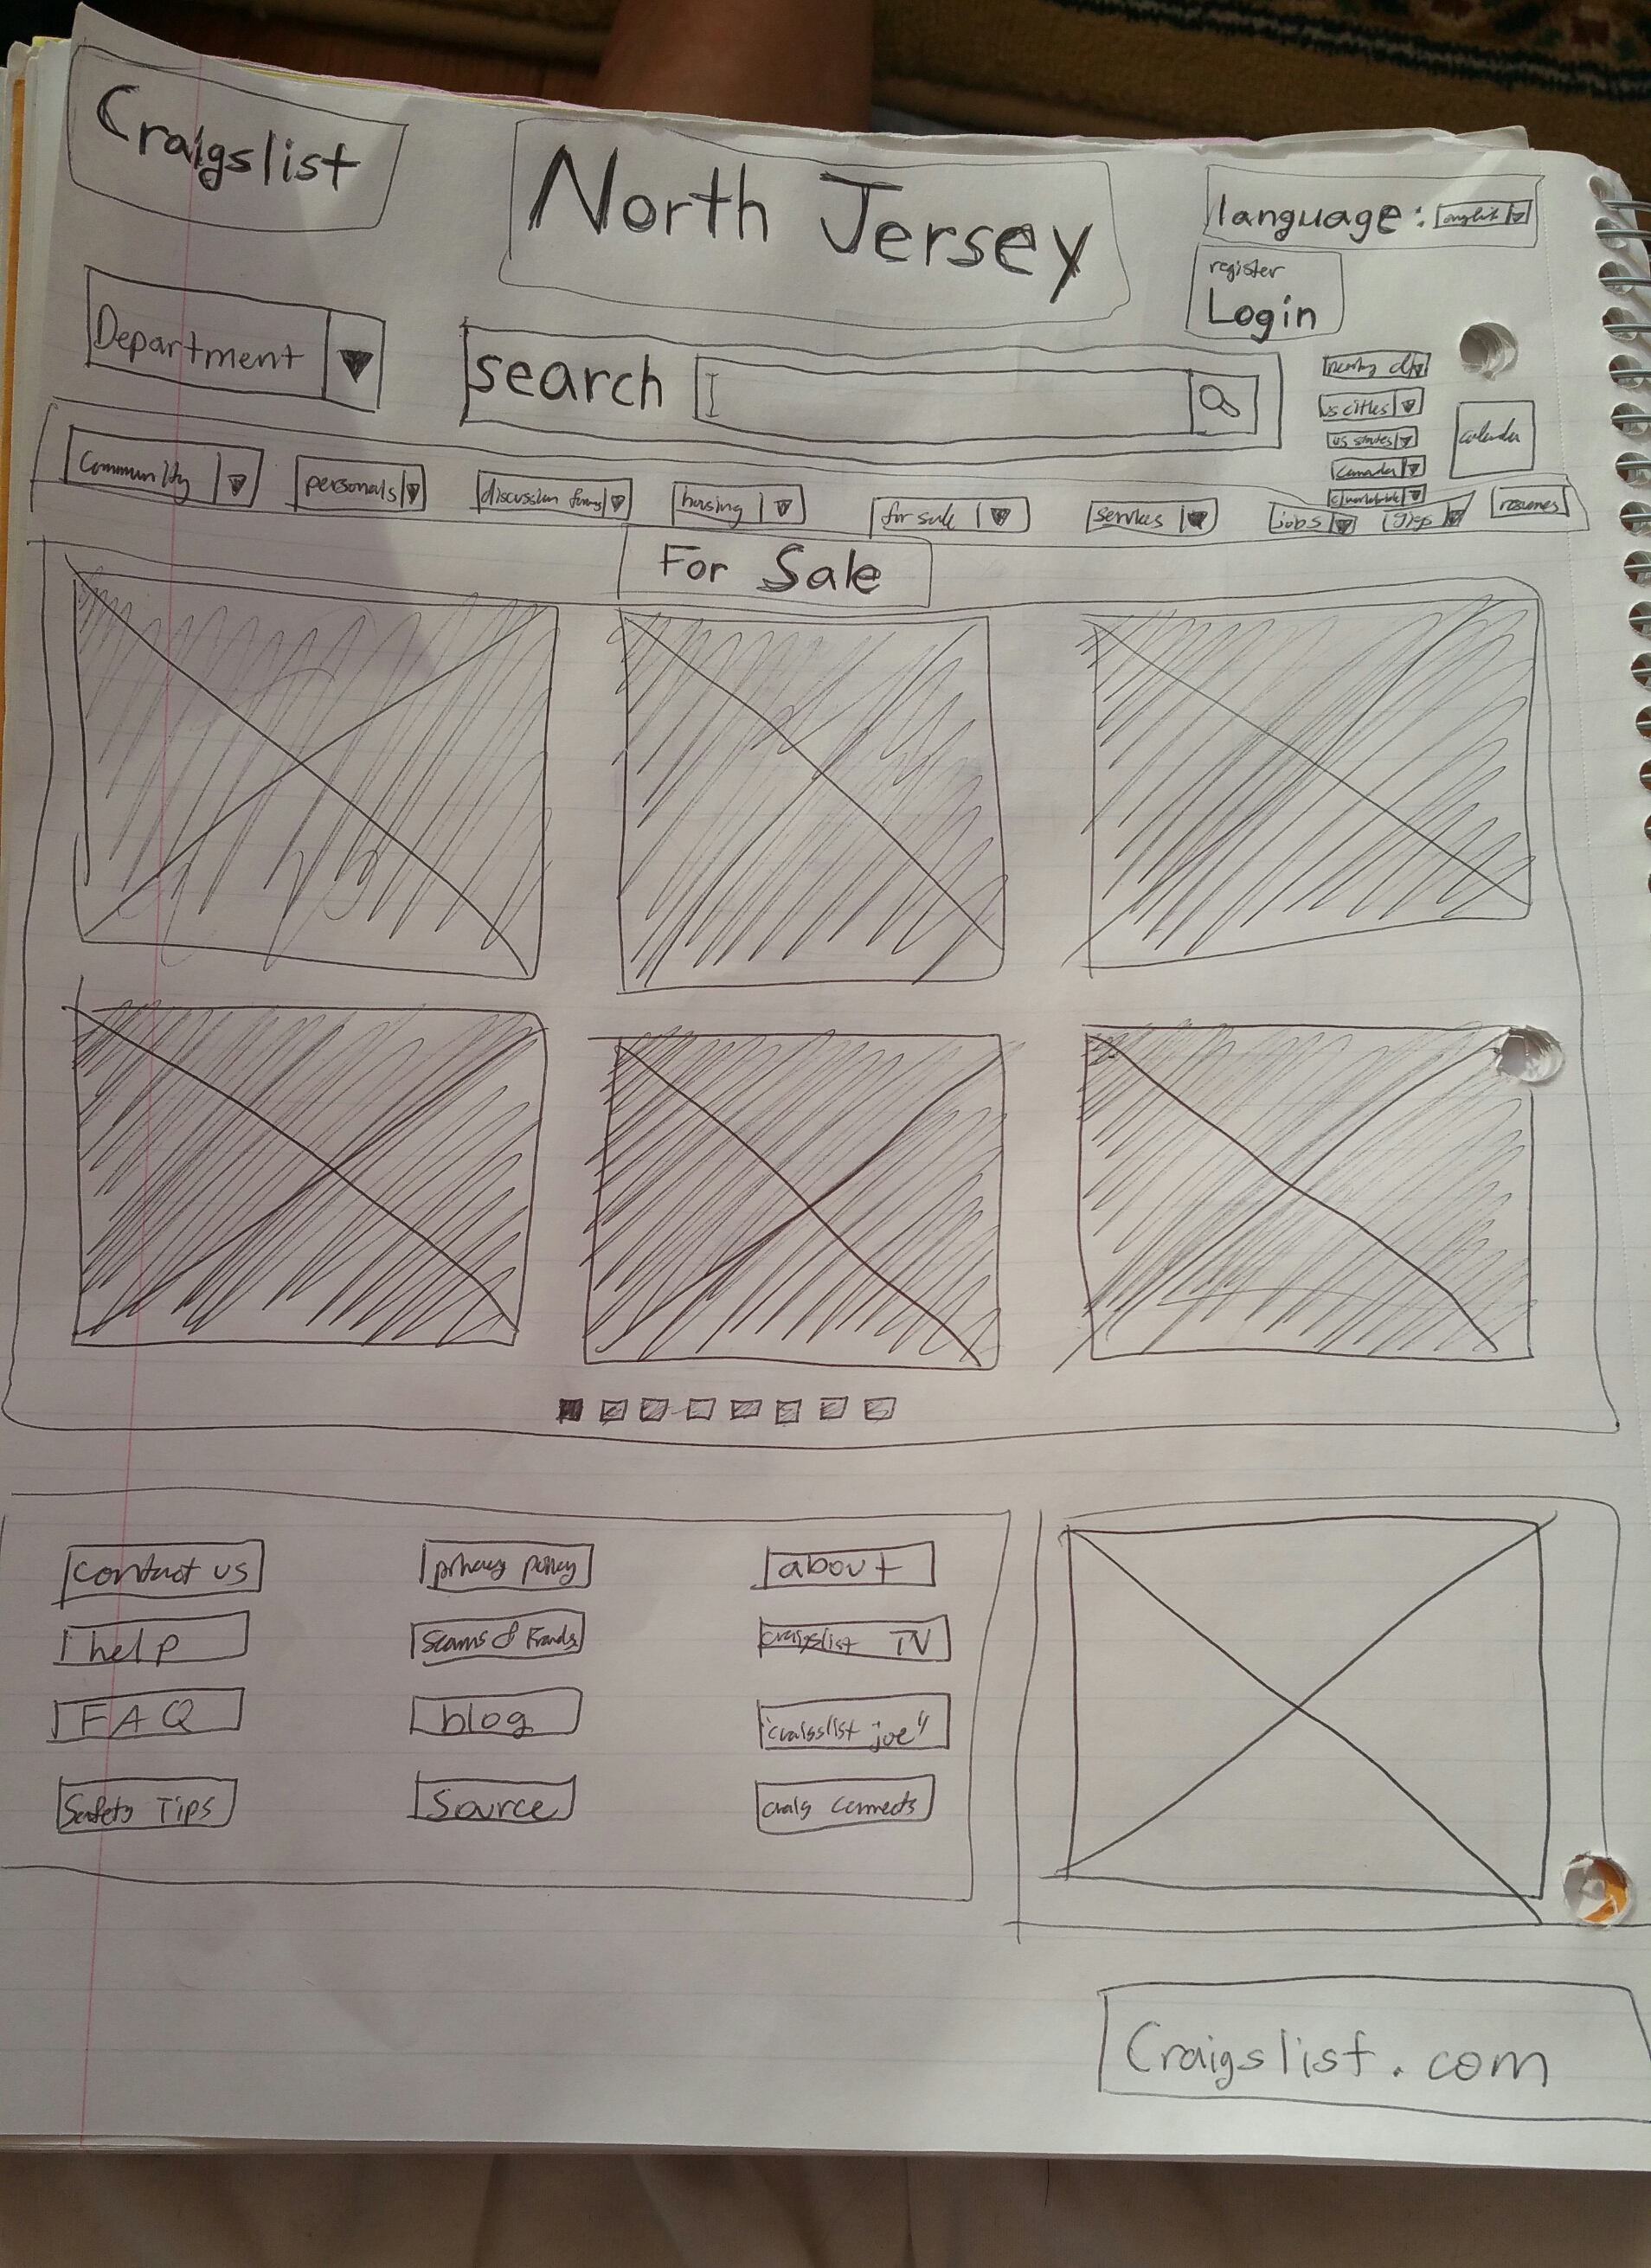 Craigslist
North Jersey
language: english
register
Login
Department
search
nearby cl
us cities
us states
canada
cl worldwide
calendar
Community
personals
discussion forums
housing
for sale
services
jobs
gigs
resumes
For Sale
contact us
privacy policy
about
help
scams & Frauds
craigslist TV
FAQ
blog
"craigslist joe"
Safety Tips
Source
craig connects
Craigslist.com